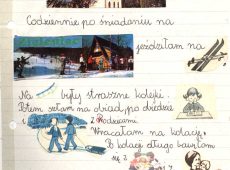 Codziennie po śniadaniu na
jeździłam na
Na były straszne kolejki.
Potem szłam na obiad, po obiedzie
i z Rodzicami
Wracałam na kolację.
Po kolacji długo bawiłam
się z